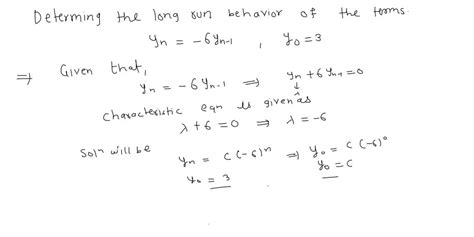 Determing the long run behavior of the terms.
yn = -6 yn-1 , y0 = 3
⇒ Given that,
yn = -6 yn-1 ⇒ yn + 6 yn-1 = 0
↓
λ
characteristic eqn is given as
λ + 6 = 0 ⇒ λ = -6
Soln will be
yn = C (-6)^n ⇒ y0 = C (-6)^0
y0 = 3 y0 = C